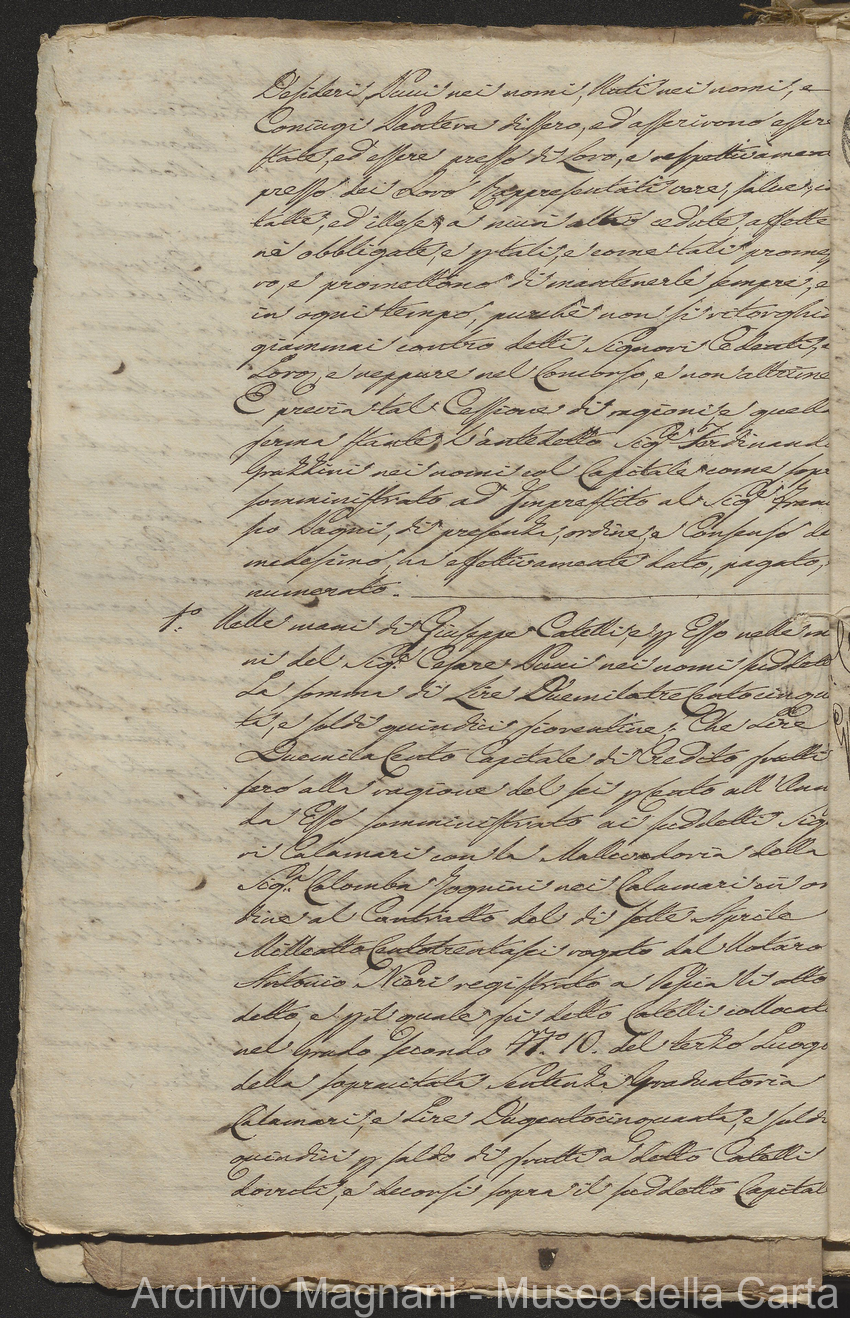 Desideri, Pucci nei nomi, Nuti nei nomi, e
Coniugi Pantera dissero, ed asserirono essere
state, ed essere presso di Loro, e respettivamen
presso dei Loro Rappresentati vere, salve, in
tatte, ed illese, a niun altro cedute, affette
nè obbligate, e p tali, e come tali prome
vo, e promettono di mantenerle sempre, e
in ogni tempo, purchè non si ritorghi
giammai contro detti Signori Cedenti, e
Loro, e neppure nel Concorso, e non altrime
E previa tal Cessione di ragioni, e quella
ferma stante, L'antedetto Sig.e Ferdinando
Grazzini nei nomi col Capitale come sopr
somministrato ad Imprestito al Sig.e Fran
Pagni, di presenza, ordine, e Consenso de
medesimo, ha effettivamente dato, pagato,
numerato.
1.° Nelle mani di Giuseppe Catelli, e p Esso nelle m
ni del Sig.e Cesare Pucci nei nomi suddett
La somma di Lire Duemilatrecentocinqu
ta, e soldi quindici fiorentine; Che Lire
Duemila Cento Capitale di Credito frutti
fero alla ragione del sei p Cento all'Ann
da Esso somministrato ai suddetti Sig
ri Calamari con la Mallevadoria della
Sig.ra Colomba Jognini nei Calamari in or
dine al Contratto del dì sette Aprile
Milleotto Centotrentasei rogato dal Notaro
Antonio Nieri registrato a Pescia li otto
detto, e p il quale fu detto Catelli collocat
nel grado secondo N.° 10. del terzo Luogo
della sopracitata Sentenza Graduatoria
Calamari, e Lire Dugentocinquanta, e soldi
quindici p saldo di frutti a detto Catelli
dovuti, e decorsi sopra il suddetto Capital
Archivio Magnani - Museo della Carta